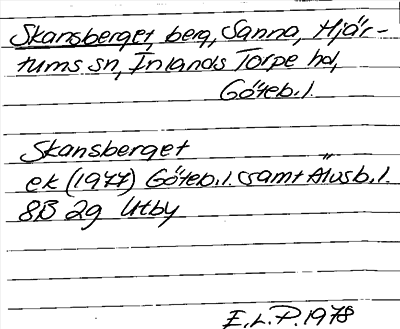 Skansberget, berg, Sanna, Hjär-
tums sn, Inlands Torpe hd,
Göteb. l.
Skansberget
ek (1977) Göteb. l. samt Älvsb. l.
8B 2g Utby
E. L. P. 1978